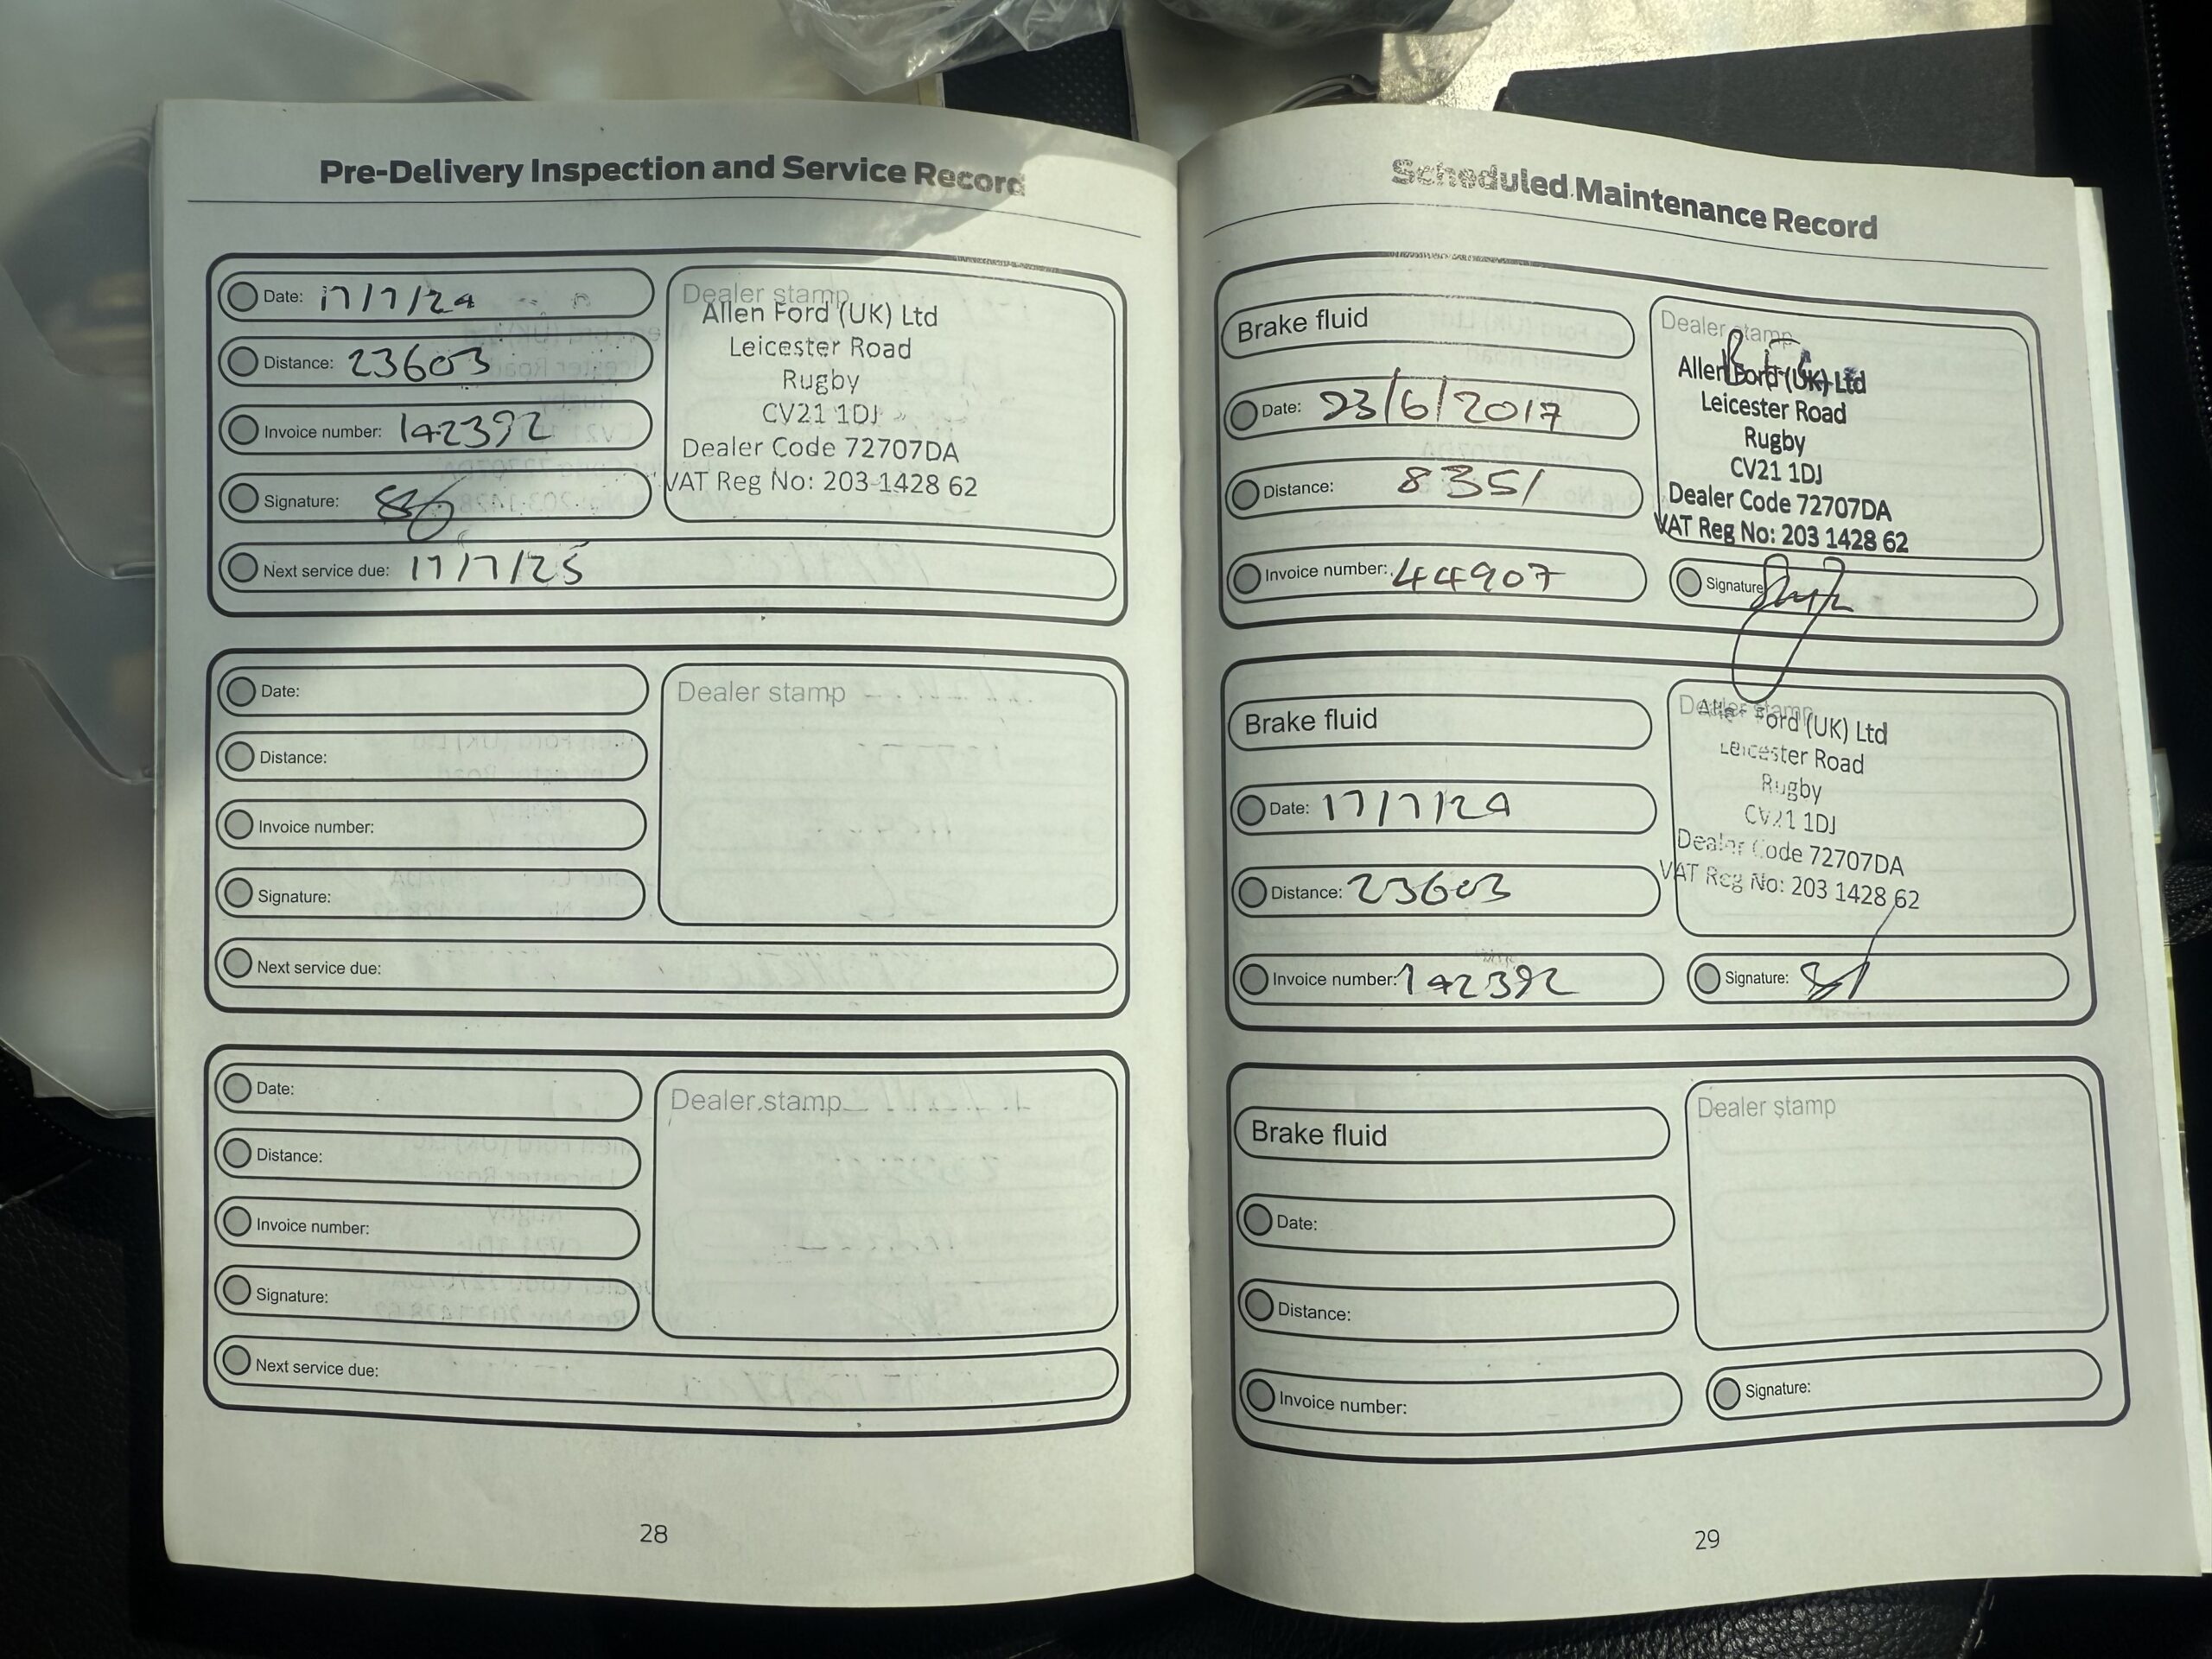 Pre-Delivery Inspection and Service Record
Date: 17/7/24
Distance: 23603
Invoice number: 142392
Signature:
Next service due: 17/7/25
Dealer stamp
Allen Ford (UK) Ltd
Leicester Road
Rugby
CV21 1DJ
Dealer Code 72707DA
VAT Reg No: 203 1428 62
Date:
Distance:
Invoice number:
Signature:
Next service due:
Dealer stamp
Date:
Distance:
Invoice number:
Signature:
Next service due:
Dealer stamp
28
Scheduled Maintenance Record
Brake fluid
Date: 23/6/2017
Distance: 8351
Invoice number: 44907
Dealer stamp
Allen Ford (UK) Ltd
Leicester Road
Rugby
CV21 1DJ
Dealer Code 72707DA
VAT Reg No: 203 1428 62
Signature
Brake fluid
Date: 17/7/24
Distance: 23603
Invoice number: 142392
Dealer stamp
Allen Ford (UK) Ltd
Leicester Road
Rugby
CV21 1DJ
Dealer Code 72707DA
VAT Reg No: 203 1428 62
Signature:
Brake fluid
Date:
Distance:
Invoice number:
Dealer stamp
Signature:
29